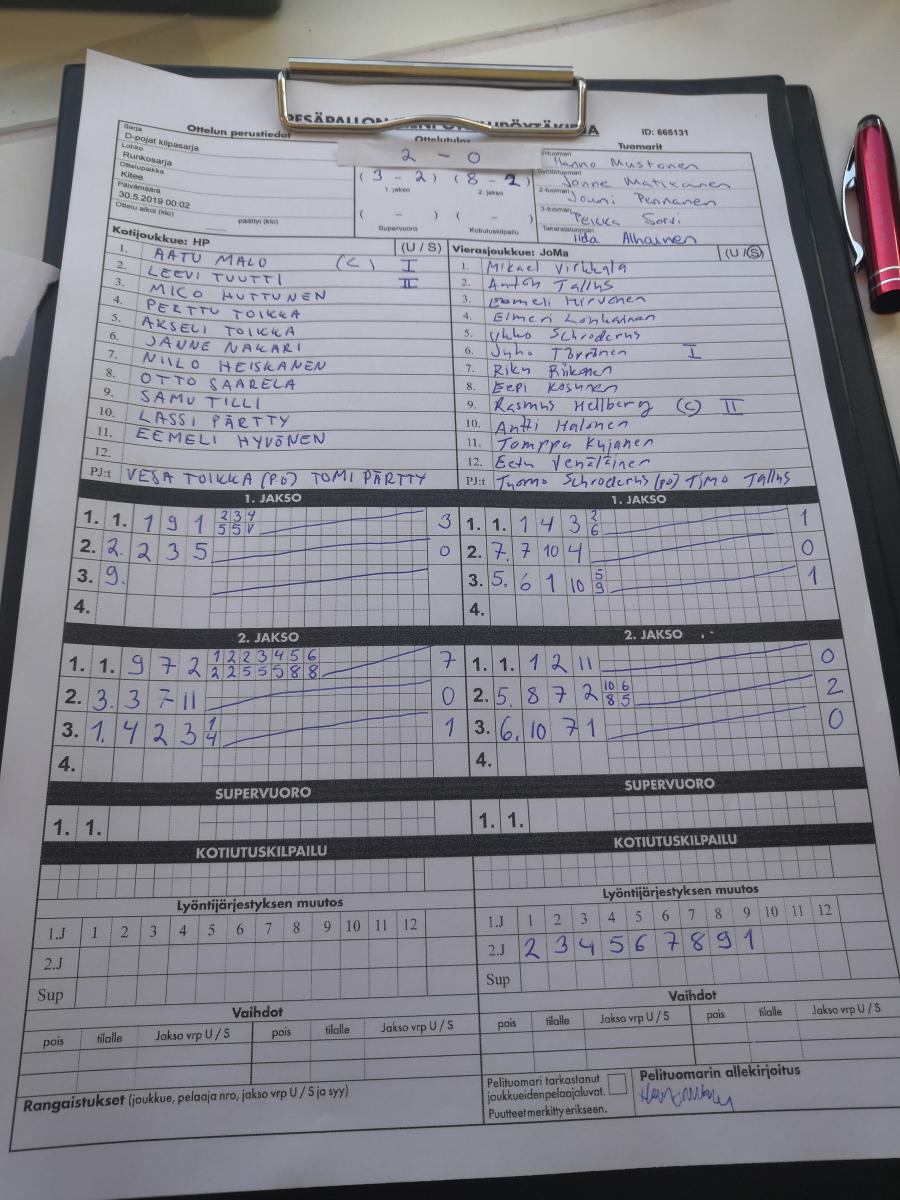 ID: 665131
Ottelun perustiedot
Ottelutulos
Tuomarit
Sarja
D-pojat kilpasarja
Lohko
Runkosarja
Ottelupaikka
Kitee
Päivämäärä
30.5.2019 00:02
Ottelu alkoi (klo)
päättyi (klo)
2 - 0
( 3 - 2 ) ( 8 - 2 )
1. jakso 2. jakso
( - ) ( - )
Supervuoro Kotiutuskilpailu
Hanno Mustonen
Janne Matikainen
2-tuomari
Jouni Pennanen
3-tuomari
Pekka Sorvi
Takarajatuomari
Iida Alhainen
Kotijoukkue: HP (U / S)
1. AATU MALO (C) I
2. LEEVI TUUTTI II
3. MICO HUTTUNEN
4. PERTTU TOIKKA
5. AKSELI TOIKKA
6. JANNE NAKARI
7. NIILO HEISKANEN
8. OTTO SAARELA
9. SAMU TILLI
10. LASSI PÄRTTY
11. EEMELI HYVÖNEN
12.
PJ:t VESA TOIKKA (PO) TOMI PÄRTTY
Vierasjoukkue: JoMa (U / S)
1. Mikael Virkkala
2. Anton Tallus
3. Eemeli Hirvonen
4. Elmeri Lonkainen
5. Ukko Schroderus
6. Juho Törrönen I
7. Riku Riikonen
8. Eepi Kosunen
9. Rasmus Hellberg (C) II
10. Antti Halonen
11. Tomppa Kujanen
12. Eetu Venäläinen
PJ:t Tuomo Schroderus (PO) Timo Tallus
1. JAKSO
1. 1. 1 9 1 2 3 4 3
5 5 V
2. 2. 2 3 5 0
3. 9.
4.
1. JAKSO
1. 1. 1 4 3 2 1
6
2. 7. 7 10 4 0
3. 5. 6 1 10 5 1
9
4.
2. JAKSO
1. 1. 9 7 2 1 2 2 3 4 5 6 7
2 2 5 5 5 8 8
2. 3. 3 7 11 0
3. 1. 4 2 3 1 1
4
4.
2. JAKSO
1. 1. 1 2 11 0
2. 5. 8 7 2 10 6 2
8 5
3. 6. 10 7 1 0
4.
SUPERVUORO
1. 1.
SUPERVUORO
1. 1.
KOTIUTUSKILPAILU
KOTIUTUSKILPAILU
Lyöntijärjestyksen muutos
1.J 1 2 3 4 5 6 7 8 9 10 11 12
2.J
Sup
Lyöntijärjestyksen muutos
1.J 1 2 3 4 5 6 7 8 9 10 11 12
2.J 2 3 4 5 6 7 8 9 1
Sup
Vaihdot
pois tilalle Jakso vrp U / S pois tilalle Jakso vrp U / S
Vaihdot
pois tilalle Jakso vrp U / S pois tilalle Jakso vrp U / S
Rangaistukset (joukkue, pelaaja nro, jakso vrp U / S ja syy)
Pelituomari tarkastanut
joukkueiden pelaajaluvat.
Puutteet merkitty erikseen.
Pelituomarin allekirjoitus